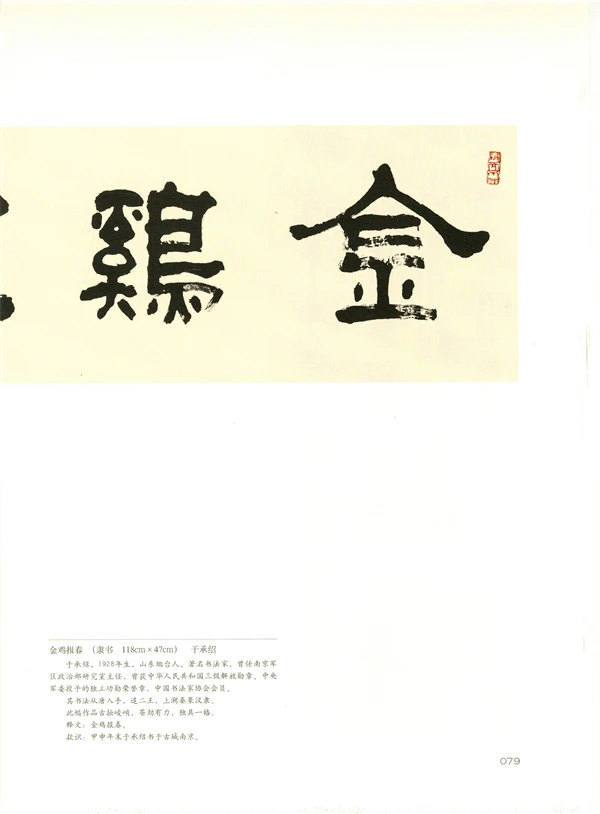 金鷄
金鸡报春 （隶书 118cm×47cm） 于承绍
于承绍，1928年生，山东烟台人。著名书法家，曾任南京军
区政治部研究室主任，曾获中华人民共和国三级解放勋章，中央
军委授予的独立功勋荣誉章，中国书法家协会会员。
其书法从唐入手，追二王，上溯秦篆汉隶。
此幅作品古拙峻峭，苍劲有力，独具一格。
释文：金鸡报春。
款识：甲申年末于承绍书于古城南京。
079